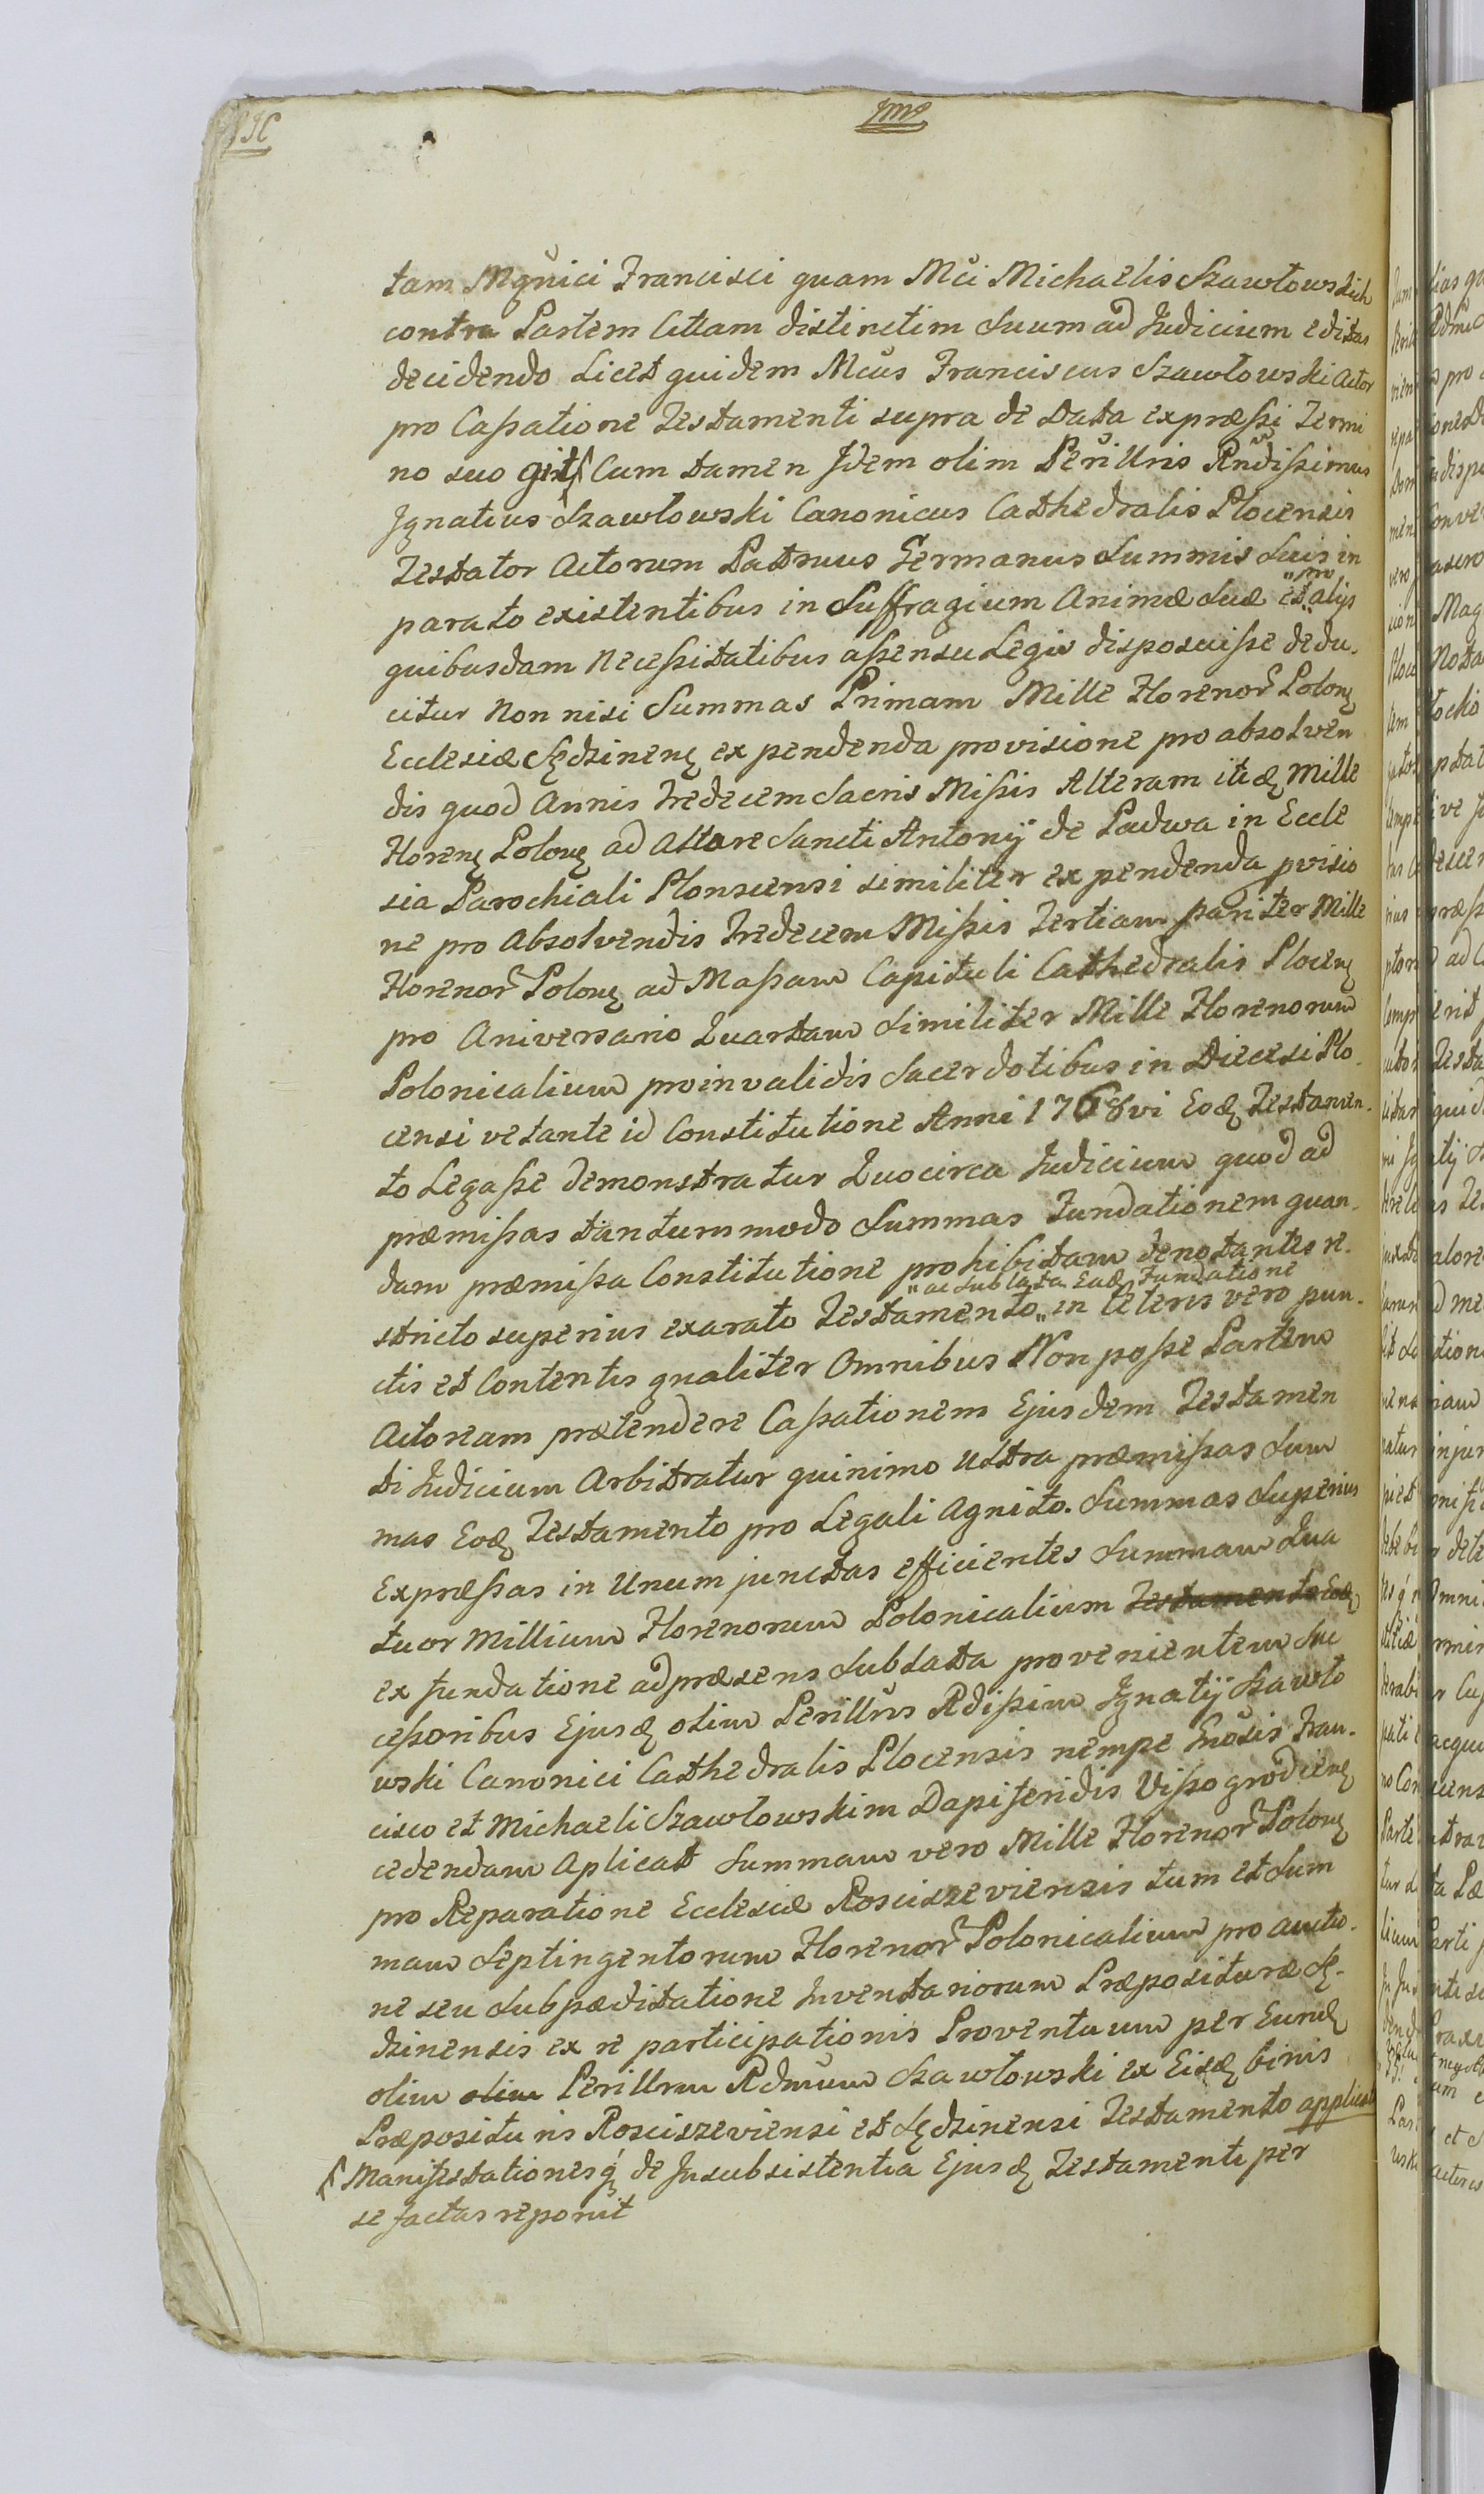 tam Mgnici Francisci quam Mci Michaelis Szawłowskich
contra Partem Cittam distinctim Suum ad Judicium editas
decidendo Licet quidem Mcus Franciscus Szawłowski Actor
pro Cassatione Testamenti supra de Data expræssi Termi
no suo git Cum tamen Idem olim Perillris Rndissimus
Ignatius Szawłowski Canonicus Cathedralis Plocensis
Testator Actorum Patruus Germanus Summis Suis in
"pro
parato existentibus in Suffragium Animæ Suæ et alijs
quibusdam Necessitatibus assensu Legis disposuisse dedu-
citur Non nisi Summas Primam Mille Florenor Polonę
Ecclesiæ Sędzinenę expendenda provisione pro absolven
dis quod Annis Tredecem Sacris Missis Alteram itidę Mille
Florenę Polonę ad Altare Sancti Antonij de Padwa in Eccle
sia Parochiali Plonscensi similiter expendenda pvisio
ne pro Absolvendis Tredecem Missis Tertiam pariter Mille
Florenor Polonę ad Massam Capituli Cathedralis Plocenę
pro Aniversario Quartam Similiter Mille Florenorum
Polonicalium pro invalidis Sacerdotibus in Diecesi Plo-
censi vetante id Constitutione Anni 1768 vi Eodę Testamen-
to Legasse demonstratur Quocirca Judicium quod ad
præmissas tantummodo Summas Fundationem quan-
dam præmissa Constitutione prohibitam denotantes re-
"ac Sublata Eadę Fundatione
stricto superius exarato Testamento" in Ceteris vero pun-
ctis et Contentis qualiter Omnibus Non posse Partem
Actoream prætendere Cassationem Ejusdem Testamen
ti Judicium Arbitratur quinimo Ultra præmissas Sum
mas Eodę Testamento pro Legali Agnito. Summas Superius
Expræssas in Unum junctas efficientes Summam Qua
tuor Millium Florenorum Polonicalium Testamento Eodę
ex fundatione ad præsens Sublata provenientem Suc
cessoribus Ejusdę olim Perillris Rdissim Ignatij Szawło
wski Canonici Cathedralis Plocensis nempe Gnosis Fran-
cisco et Michaeli Szawłowskim Dapiferidis Vissogrodienę
cedendam Aplicat Summam vero Mille Florenor Polonę
pro Reparatione Ecclesiæ Rosciszeviensis tum et Sum
mam Septingentorum Florenor Polonicalium pro auctio-
ne seu Subpæditatione Inventariorum Præpositure Sę-
dzinensis ex re participationis Proventuum per Eundę
olim olim Perillrm Rdmum Szawłowski ex Eisdę binis
Præposituris Rosciszeviensi et Sędzinensi Testamento applicat
Manifestationesq de Insubsistentia Ejusdę Testamenti per
se factas reponit